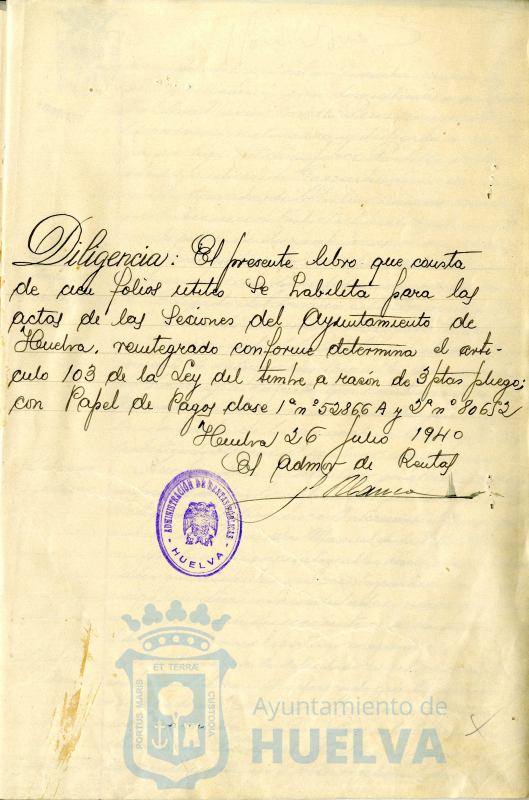 Diligencia: El presente libro que consta
de cien folios utiles se habilita para las
actas de las Sesiones del Ayuntamiento de
Huelva, reintegrado conforme determina el arti-
culo 103 de la Ley del timbre a rasón de 3 ptas pliego;
con Papel de Pagos clase 1ª nº 52866 A y 2ª nº 80652
Huelva 26 Julio 1940
El Admor de Rentas
Blanco
ADMINISTRACIÓN DE RENTAS PÚBLICAS
- HUELVA -
PORTUS MARIS ET TERRÆ CUSTODIA
Ayuntamiento de
HUELVA